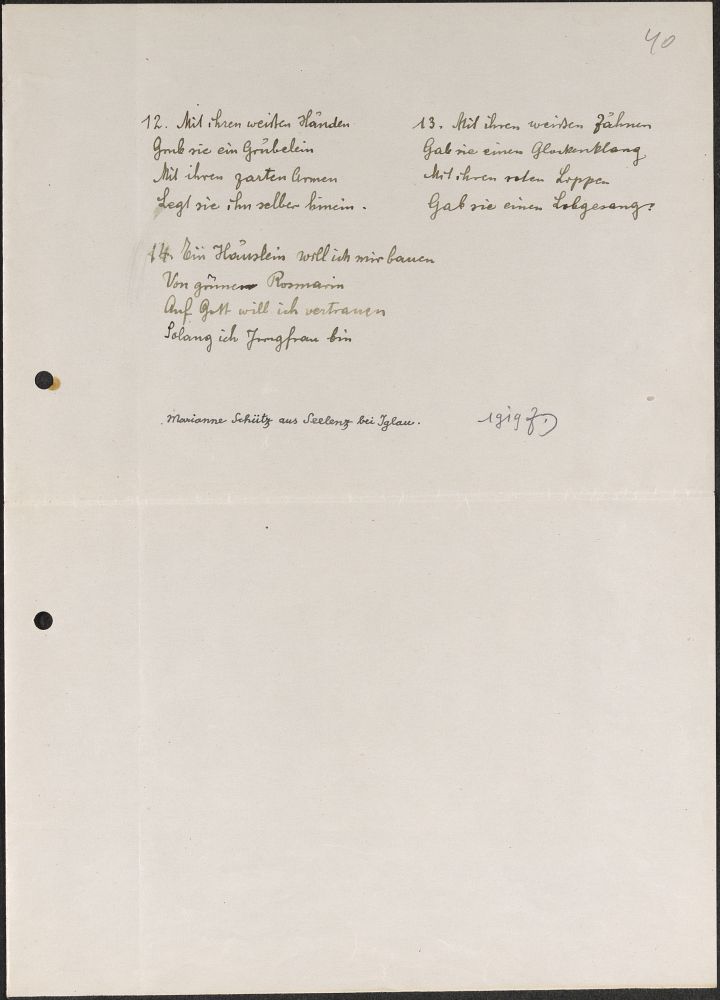 40
12. Mit ihren weißen Händen
Grub sie ein Grübelein
Mit ihren zarten Armen
Legt sie ihn selber hinein.
13. Mit ihren weißen Zähnen
Gab sie einen Glockenklang
Mit ihren roten Lippen
Gab sie einen Lobgesang.
14. Ein Häuslein will ich mir bauen
Von grünen Rosmarin
Auf Gott will ich vertrauen
Solang ich Jungfrau bin
Marianne Schütz aus Seelenz bei Iglau.
1919